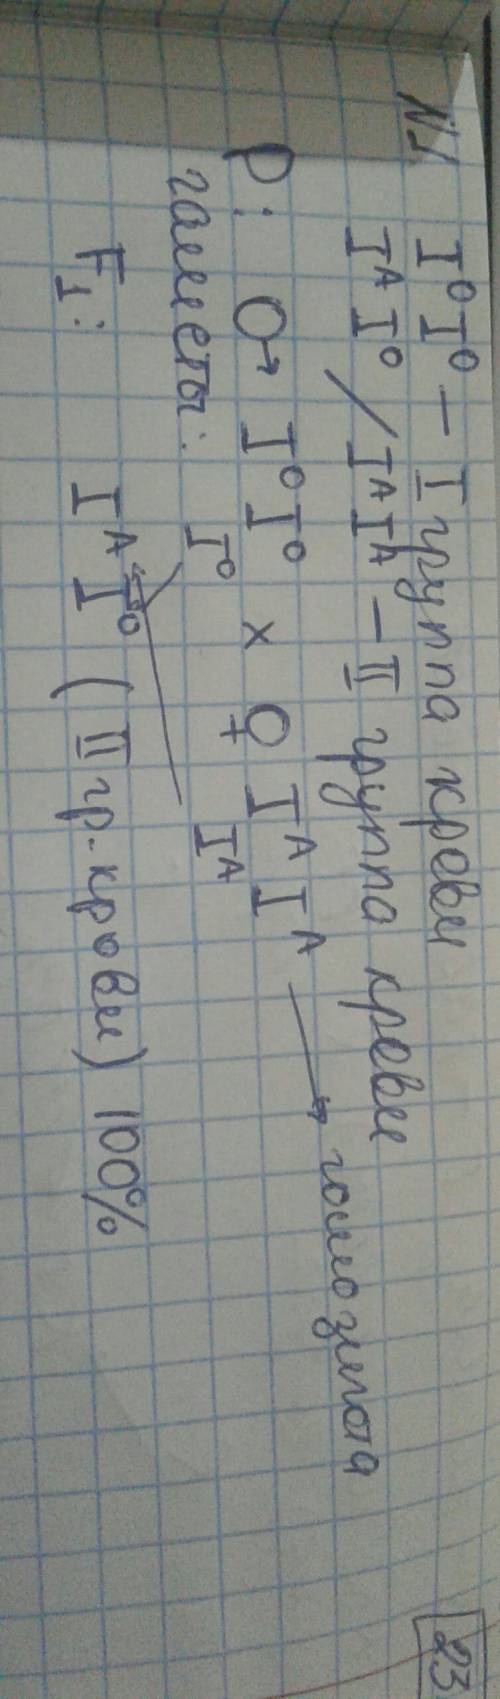 23
N1 I⁰I⁰ – I группа крови
IᴬI⁰ / IᴬIᴬ – II группа крови
P: ♂ I⁰I⁰ x ♀ IᴬIᴬ → гомозигота
гаметы: I⁰ Iᴬ
F₁: IᴬI⁰ (II гр. крови) 100%